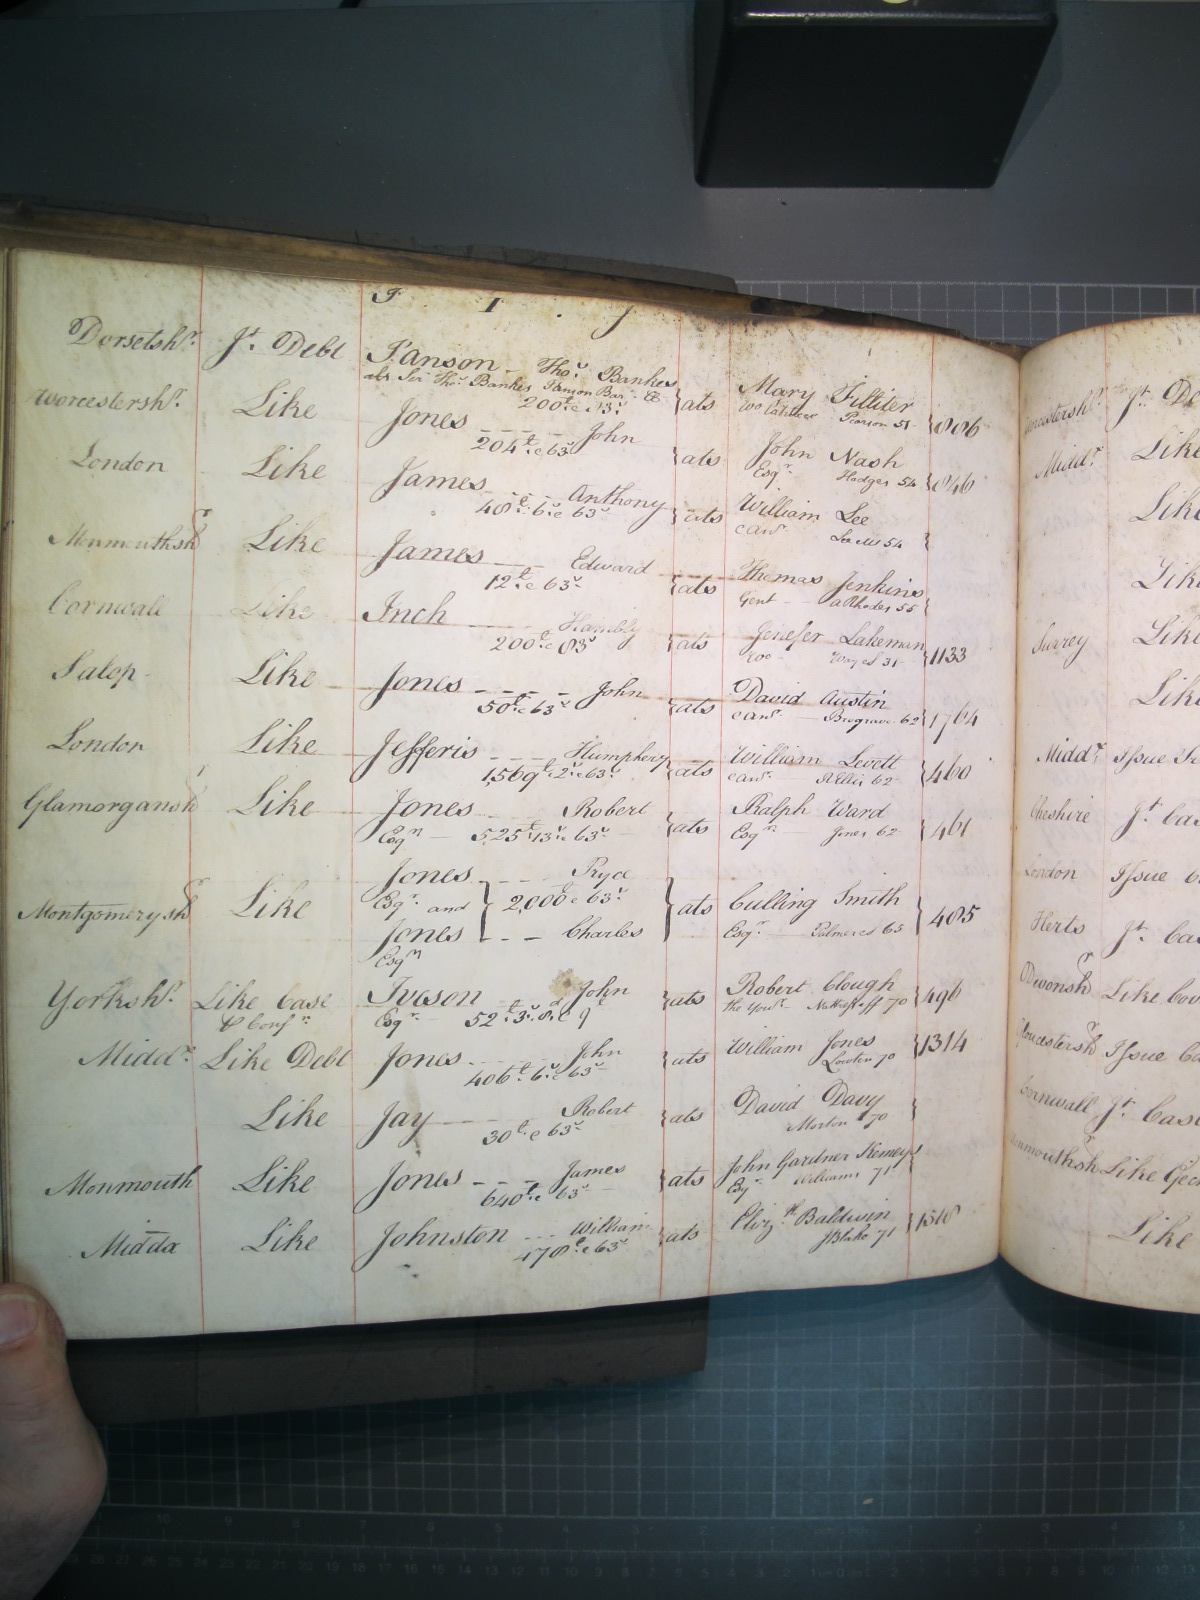 I I J
Dorsetshr. Jt. Debt I'anson - Thos. Bankes
als Sir Thos. Bankes I'anson Bart. &c
200£ & 83s } ats Mary Filliter
Wo Pearson 51 } 886
Worcestershr. Like Jones - - - - John
204£ & 63s } ats John Nash
Esqr. Hodges 54 } 846
London Like James - - Anthony
48£. 6s. & 63s } ats William Lee
Lee 54 }
Monmouthshr Like James - - - Edward
12£. & 63s } ats Thomas Jenkins
Gent - a Rhodes 55 }
Cornwall Like Inch - - - Hambly
200£. & 83s } ats Jenefer Lakeman
Wo - 31 } 1133
Salop Like Jones - - - - John
50£. & 63s } ats David Austin
Bregrave 62 } 1764
London Like Jefferis - - - - Humphery
1,569£. 2s. & 63s. } ats William Levett
62 } 460
Glamorgansh Like Jones - - - Robert
Esqr. - 525£. 13s. & 63s. } ats Ralph Ward
Esqr. - Jones 62 } 461
Jones - - - Pryce
Montgomerysh Like Esqr. and } 2,000£ & 63s. } ats Culling Smith
Jones - - - Charles Esqr. - Palmer 65 } 485
Esqr.
Yorkshr. Like Case Iveson - - - John
& Confn. Esqr. - 52£. 3s. 8d. & 9£ } ats Robert Clough
the Youngr. - 70 } 496
Middx. Like Debt Jones - - - - John
406£. 6s. & 63s } ats William Jones
Lowten 70 } 1314
Like Jay - - - Robert
30£. & 63s } ats David Davy
Morton 70 }
Monmouth Like Jones - - - James
640£. & 63s - } ats John Gardner Kemeys
Esqr. Williams 71
Middx Like Johnston - - - William
478£ & 63s } ats Elizth. Baldwin
J Blake 71 } 1518
Jt. De
Middr. Like
Like
Like
Surrey Like
Like
Middr. Issue
Cheshire Jt. Cas
London Issue
Herts Jt. Cas
Devonsh Like
Gloucestersh Issue
Cornwall Jt. Cas
Like
Like